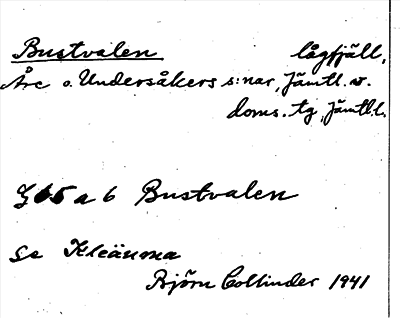 Bustvalen lågfjäll,
Åre o. Undersåkers s:nar, Jämtl. v.
doms. tg, Jämtl. l.
65 a 6 Bustvalen
Se
Björn Collinder 1941